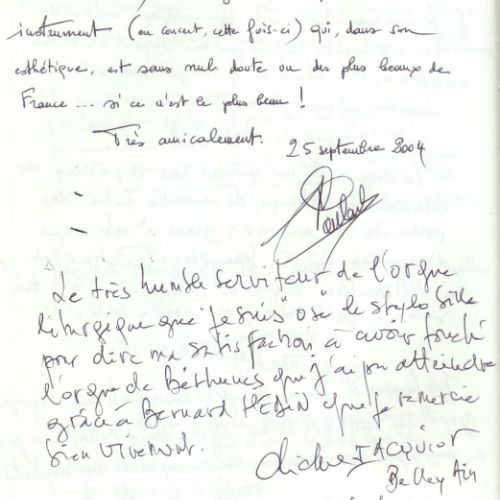 instrument (en concert, cette fois-ci) qui, dans son
esthétique, est sans nul doute un des plus beaux de
France... si ce n'est le plus beau !
Très amicalement.
25 septembre 2004
"Le très humble serviteur de l'orgue
liturgique que je suis" ose le stylo
pour dire ma satisfaction à avoir touché
l'orgue de Béthunes que j'ai pu atteindre
grâce à Bernard HEDIN que je remercie
bien vivement.
JACQUIOT
Belley Ain